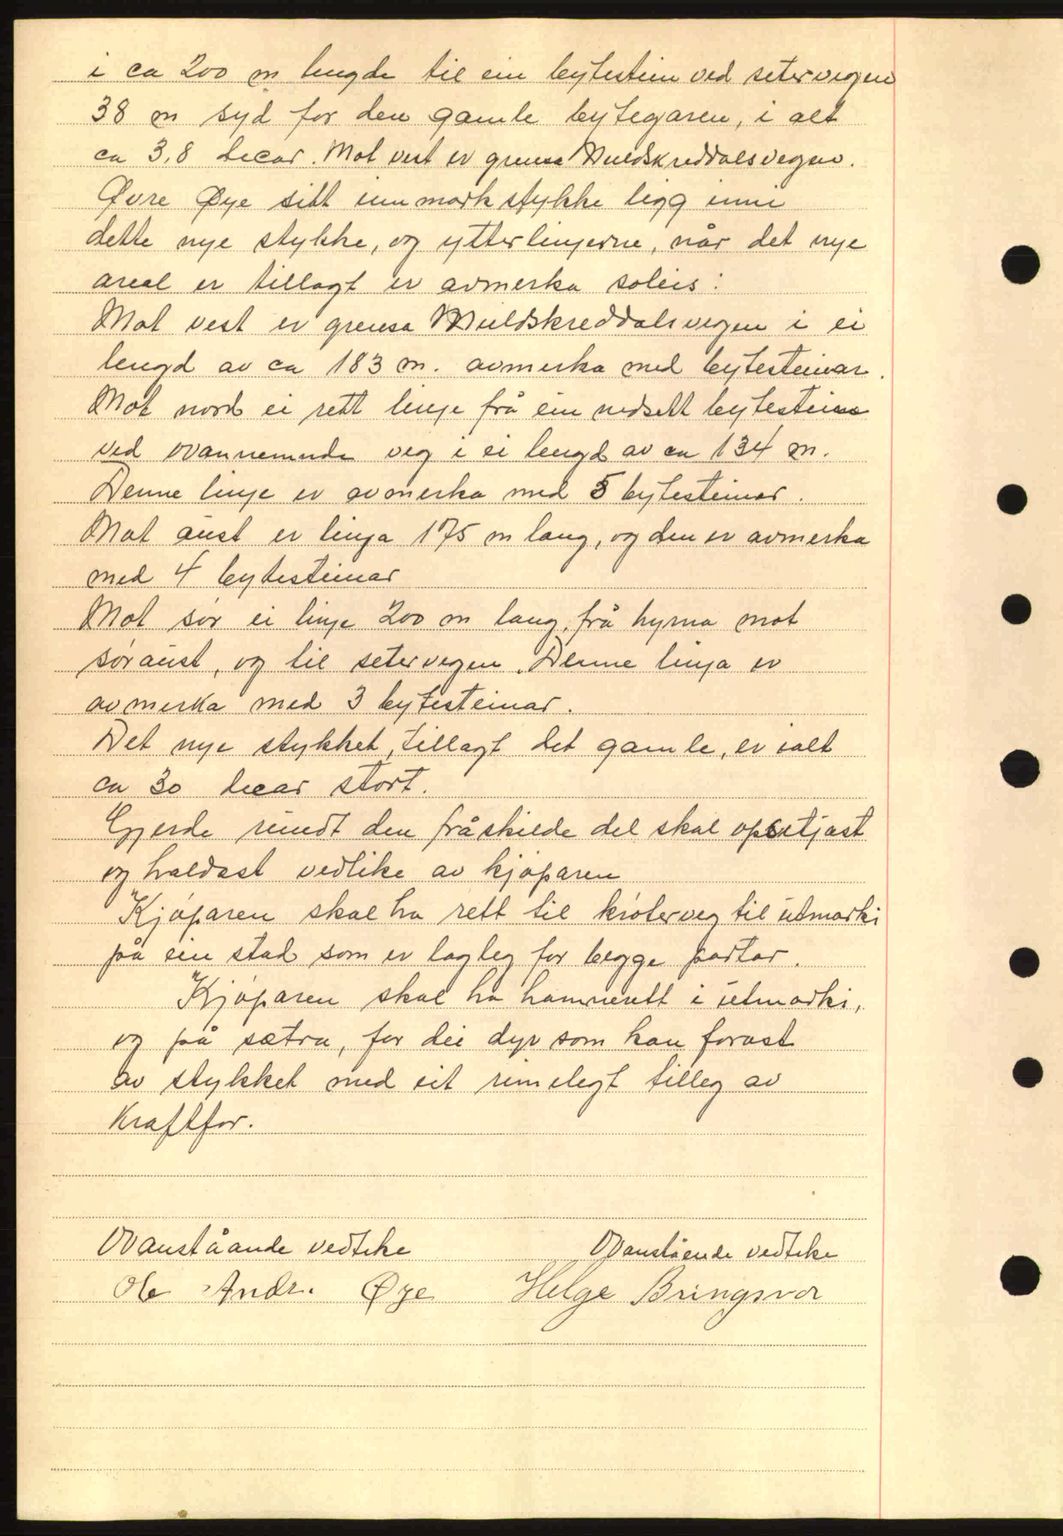 i ca 200 m lengde til ein bytestein ved setervegen
38 m syd for den gamle bytegaren, i alt
ca 3,8 decar. Mot vest er grensa Muldskreddalsvegen.
Øvre Øye sitt innmark stykke ligg inni
dette nye stykke, og ytterlinjerne, når det nye
areal er tillagt er avmerka soleis:
Mot vest er grensa Muldskreddalsvegen i ei
lengd av ca 183 m. avmerka med bytesteinar.
Mot nord ei rett linje frå ein nedsett bytestein
ved ovannemnde veg i ei lengd av ca 134 m.
Denne linje er avmerka med 5 bytesteinar.
Mot aust er linja 175 m lang, og den er avmerka
med 4 bytesteinar
Mot sør ei linje 200 m lang, frå hyrna mot
søraust, og til setervegen. Denne linja er
avmerka med 3 bytesteinar.
Det nye stykket, tillagt det gamle, er ialt
ca 30 decar stort.
Gjerde rundt den fråskilde del skal opsetjast
og haldast vedlike av kjøparen
Kjøparen skal ha rett til krøterveg til utmarki
på ein stad som er lagleg for begge partar.
Kjøparen skal ha hamnerett i utmarki,
og på sætra, for dei dyr som kan forast
av stykket med eit rimelegt tilleg av
Kraftfor.
Ovanståande vedteke Ovanstående vedteke
Ole Andr. Øye Helge Bringsvor